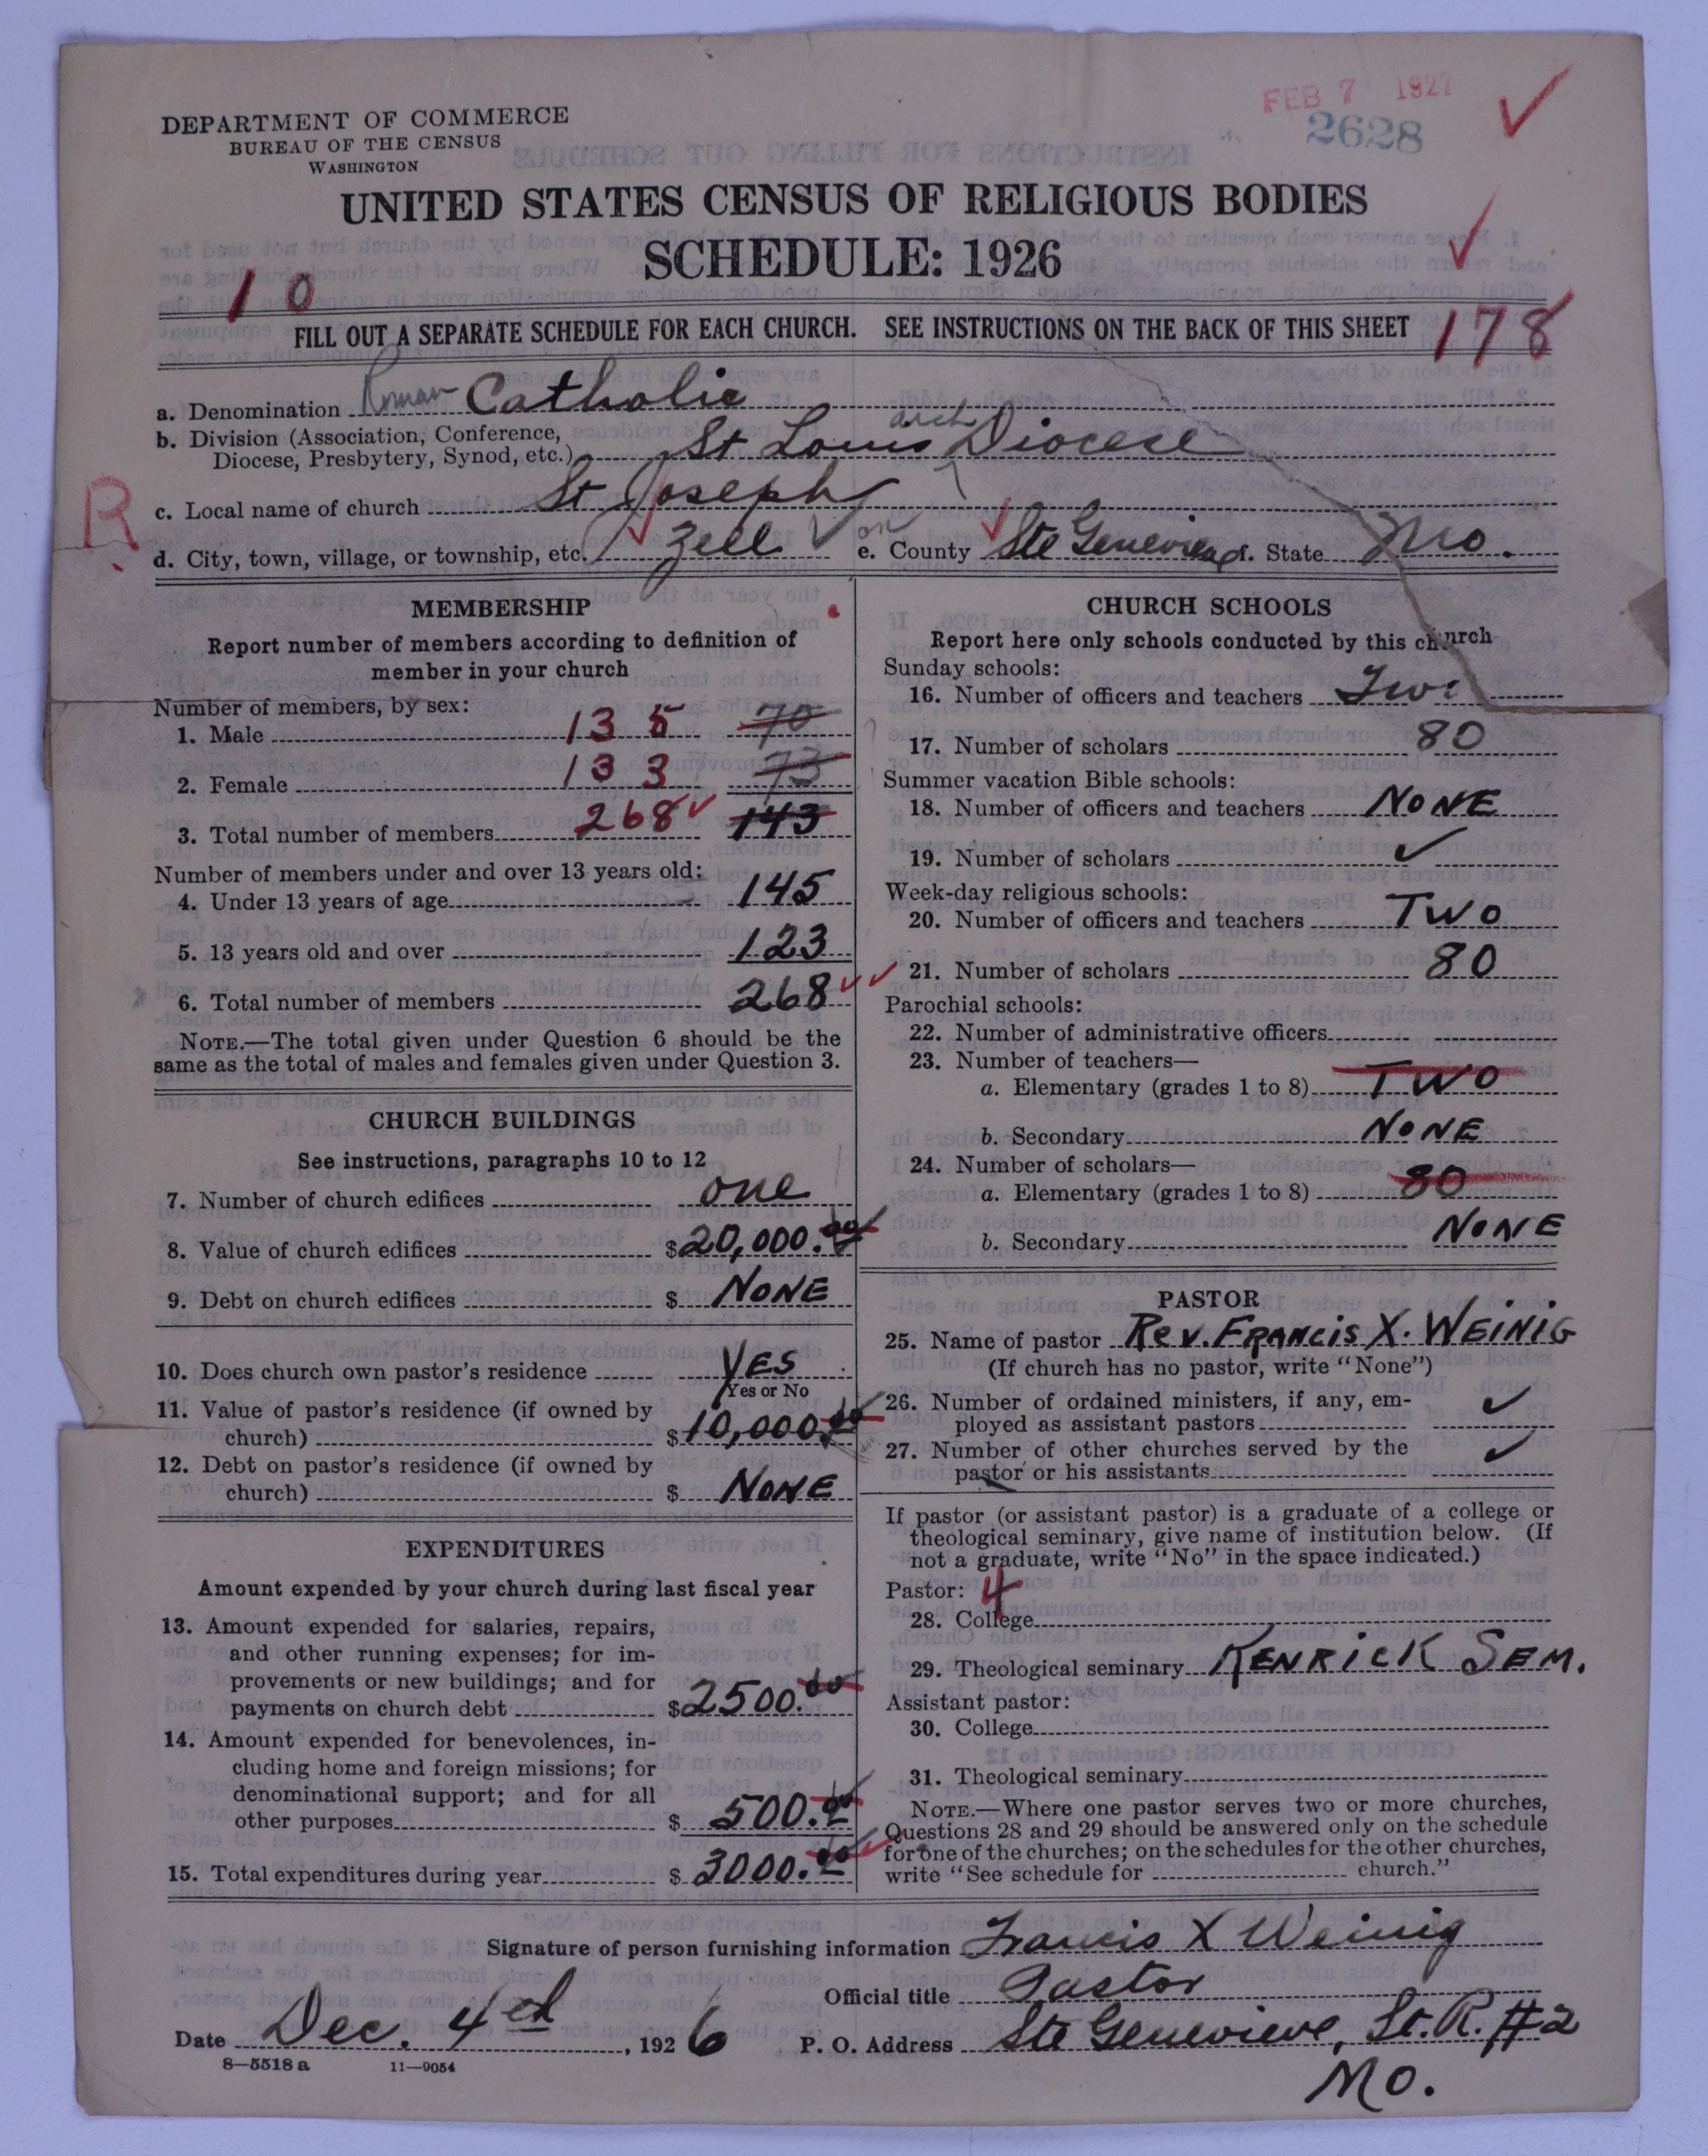 FEB 7 1927
2628
DEPARTMENT OF COMMERCE
BUREAU OF THE CENSUS
WASHINGTON
UNITED STATES CENSUS OF RELIGIOUS BODIES
SCHEDULE: 1926
10
FILL OUT A SEPARATE SCHEDULE FOR EACH CHURCH. SEE INSTRUCTIONS ON THE BACK OF THIS SHEET 178
a. Denomination Roman Catholic
b. Division (Association, Conference, Diocese, Presbytery, Synod, etc.) St Louis arch Diocese
R.
c. Local name of church St Joseph
d. City, town, village, or township, etc. Zell e. County Ste Genevieve f. State Mo.
MEMBERSHIP
Report number of members according to definition of
member in your church
Number of members, by sex:
1. Male 135 70
2. Female 133 73
3. Total number of members 268 143
Number of members under and over 13 years old:
4. Under 13 years of age 145
5. 13 years old and over 123
6. Total number of members 268
NOTE.—The total given under Question 6 should be the
same as the total of males and females given under Question 3.
CHURCH BUILDINGS
See instructions, paragraphs 10 to 12
7. Number of church edifices one
8. Value of church edifices $20,000.00
9. Debt on church edifices $ NONE
10. Does church own pastor's residence YES
Yes or No
11. Value of pastor's residence (if owned by
church) $10,000.00
12. Debt on pastor's residence (if owned by
church) $ NONE
EXPENDITURES
Amount expended by your church during last fiscal year
13. Amount expended for salaries, repairs,
and other running expenses; for im-
provements or new buildings; and for
payments on church debt $2500.00
14. Amount expended for benevolences, in-
cluding home and foreign missions; for
denominational support; and for all
other purposes $ 500.00
15. Total expenditures during year $ 3000.00
CHURCH SCHOOLS
Report here only schools conducted by this church
Sunday schools:
16. Number of officers and teachers Two
17. Number of scholars 80
Summer vacation Bible schools:
18. Number of officers and teachers NONE
19. Number of scholars ✓
Week-day religious schools:
20. Number of officers and teachers TWO
21. Number of scholars 80
Parochial schools:
22. Number of administrative officers
23. Number of teachers—
a. Elementary (grades 1 to 8) TWO
b. Secondary NONE
24. Number of scholars—
a. Elementary (grades 1 to 8) 80
b. Secondary NONE
PASTOR
25. Name of pastor Rev. FRANCIS X. WEINIG
(If church has no pastor, write "None")
26. Number of ordained ministers, if any, em-
ployed as assistant pastors ✓
27. Number of other churches served by the
pastor or his assistants ✓
If pastor (or assistant pastor) is a graduate of a college or
theological seminary, give name of institution below. (If
not a graduate, write "No" in the space indicated.)
Pastor: 4
28. College
29. Theological seminary KENRICK SEM.
Assistant pastor:
30. College
31. Theological seminary
NOTE.—Where one pastor serves two or more churches,
Questions 28 and 29 should be answered only on the schedule
for one of the churches; on the schedules for the other churches,
write "See schedule for church."
Signature of person furnishing information Francis X Weinig
Official title Pastor
Date Dec. 4th, 1926 P. O. Address Ste Genevieve, St. R. #2
MO.
8—5518 a 11—9054